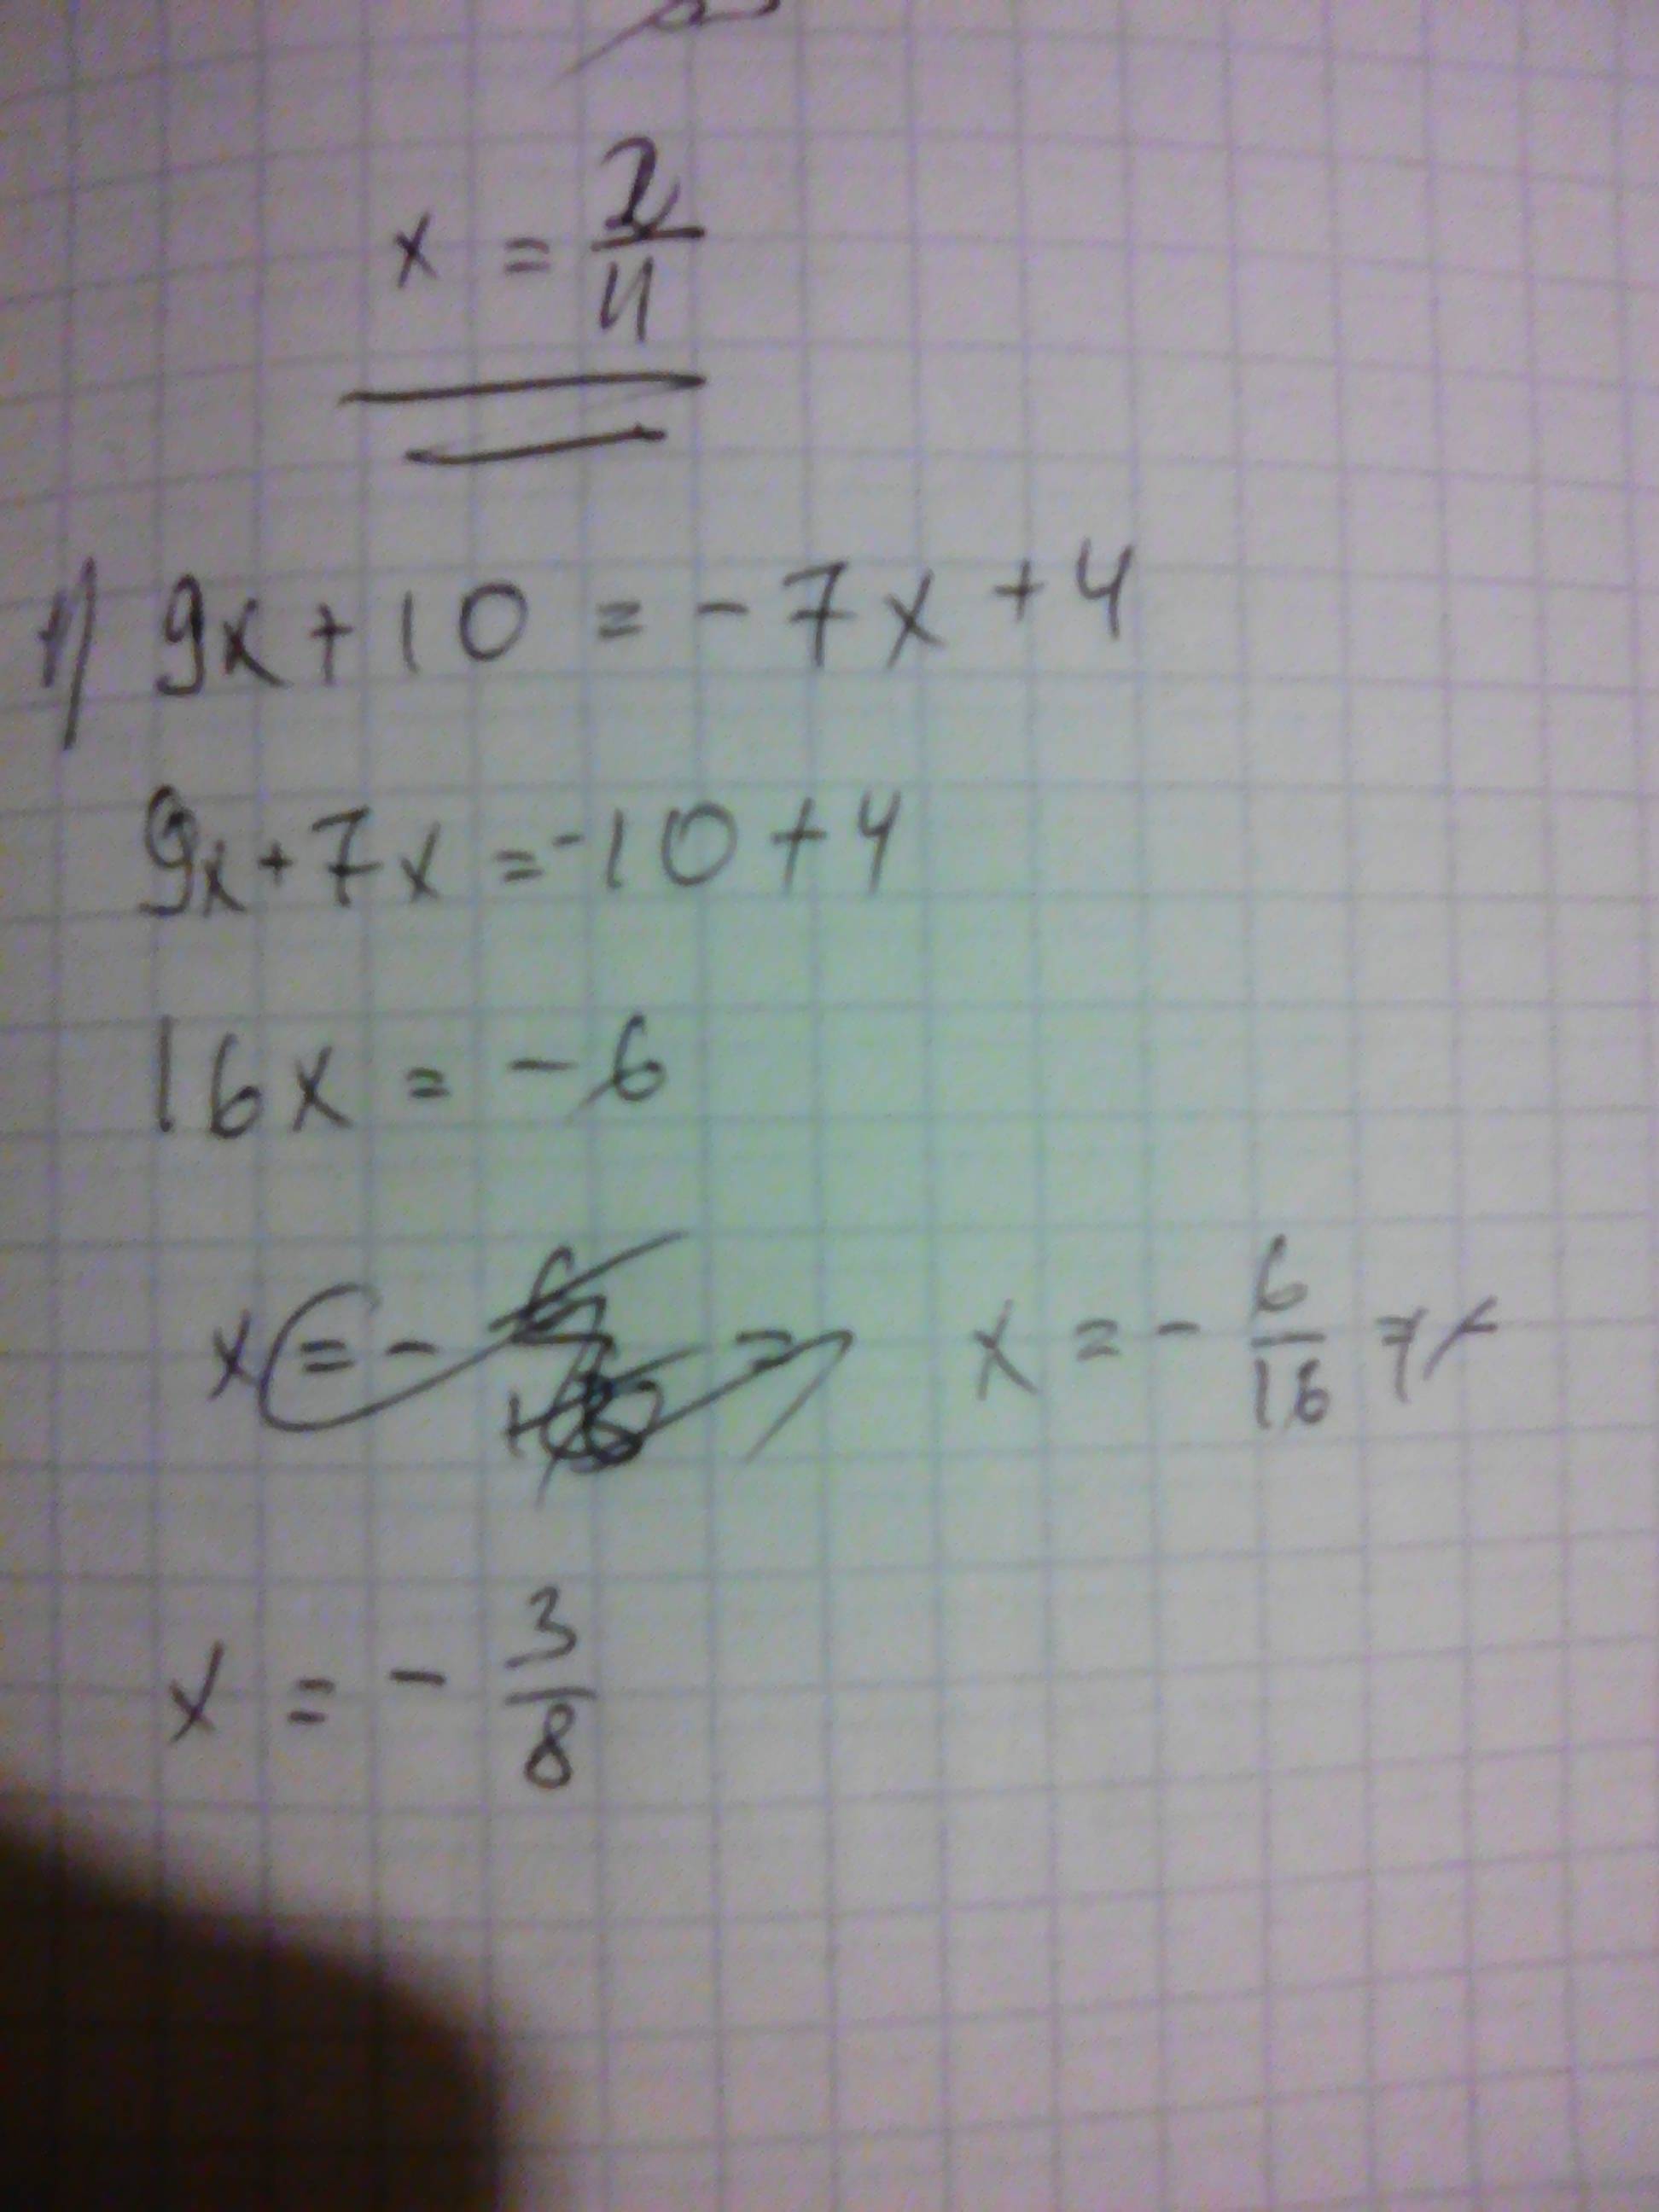 x = 2/11
1) 9x + 10 = - 7x + 4
9x + 7x = -10 + 4
16x = - 6
x = - = x = - 6/16 =
x = - 3/8